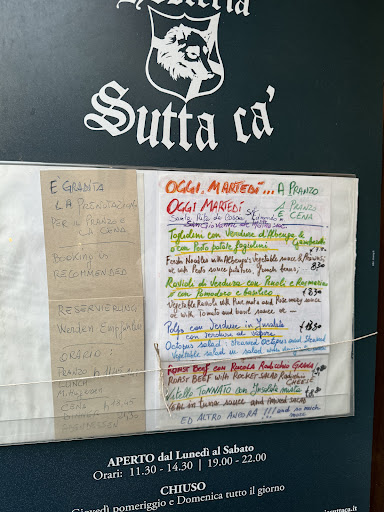 Hosteria
Sutta ca'
E' GRADITA
LA PRENOTAZIONE
PER IL PRANZO E
LA CENA
BOOKING IS
RECOMMENDED
RESERVIERUNG
Werden Empfohlen
ORARIO
PRANZO
LUNCH
CENA
OGGI. MARTEDÍ... A PRANZO
OGGI MARTEDÍ
A PRANZO
E CENA
Santa Rita da Cascia
Tagliolini con Verdure d'Albenga &
o con Pesto patate fagiolini
Fresh Noodles with Albenga's Vegetable sauce &
or with Pesto sauce potatoes, french beans;
8,50
Ravioli di Verdura con Pinoli e Rosmarino
o con Pomodoro e basilico
Vegetable Ravioli with
or with Tomato and basil sauce
Polpo con Verdure in Insalata
con Verdure al Vapore
Octopus salad - Steamed Octopus and Steamed
Vegetable salad
ROAST Beef con Rucola Radicchio Grana
ROAST BEEF WITH ROCKET SALAD
Vitello TONNATO con Insalata mista
Veal in tuna sauce and mixed salad
ED ALTRO ANCORA !!! and so much
more
APERTO dal Lunedì al Sabato
Orari: 11.30 - 14.30 | 19.00 - 22.00
CHIUSO
Giovedì pomeriggio e Domenica tutto il giorno